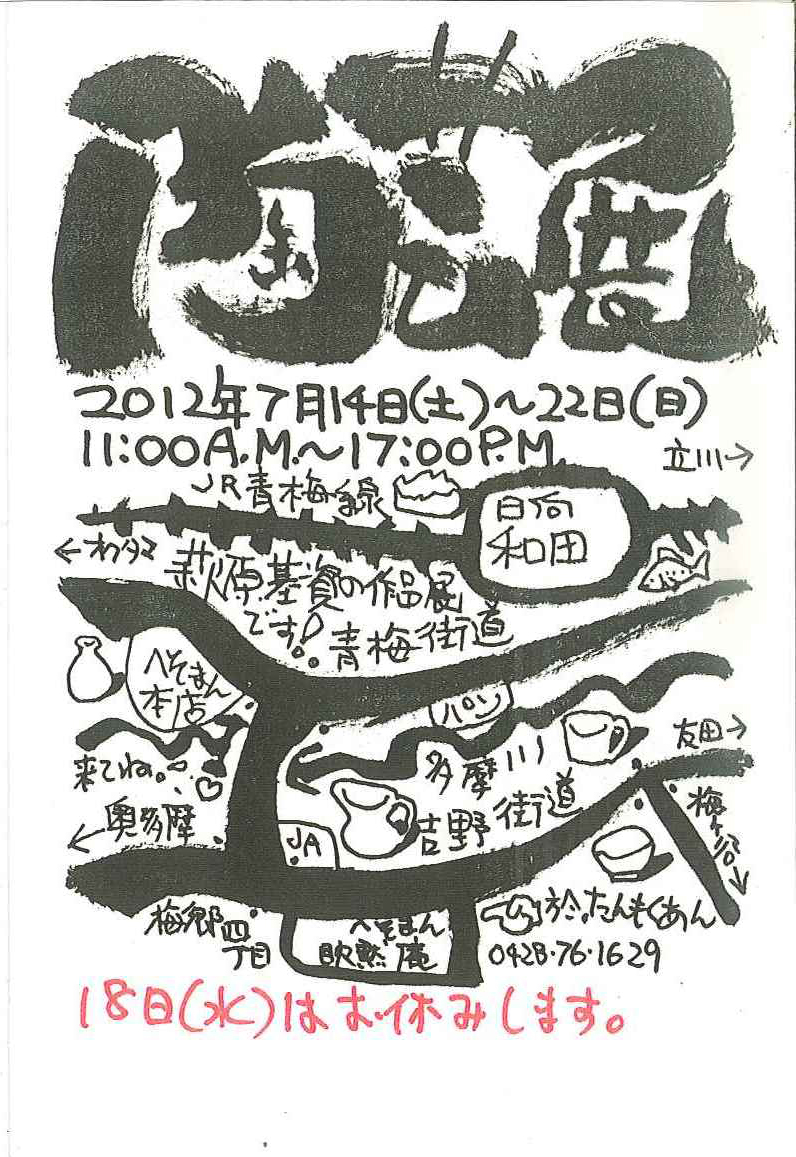 陶芸展
2012年7月14日(土)～22日(日)
11:00A.M.～17:00P.M.
立川→
JR青梅線
日向
和田
←オクタマ
萩原基資の作品展
です!
青梅街道
へそまん
本店
パン
友田→
来てね。
多摩川
梅ヶ谷↓
←奥多摩
吉野街道
JA
梅郷四
丁目
へそまん
眈黙庵
於,たんもくあん
0428・76・1629
18日(水)はお休みします。